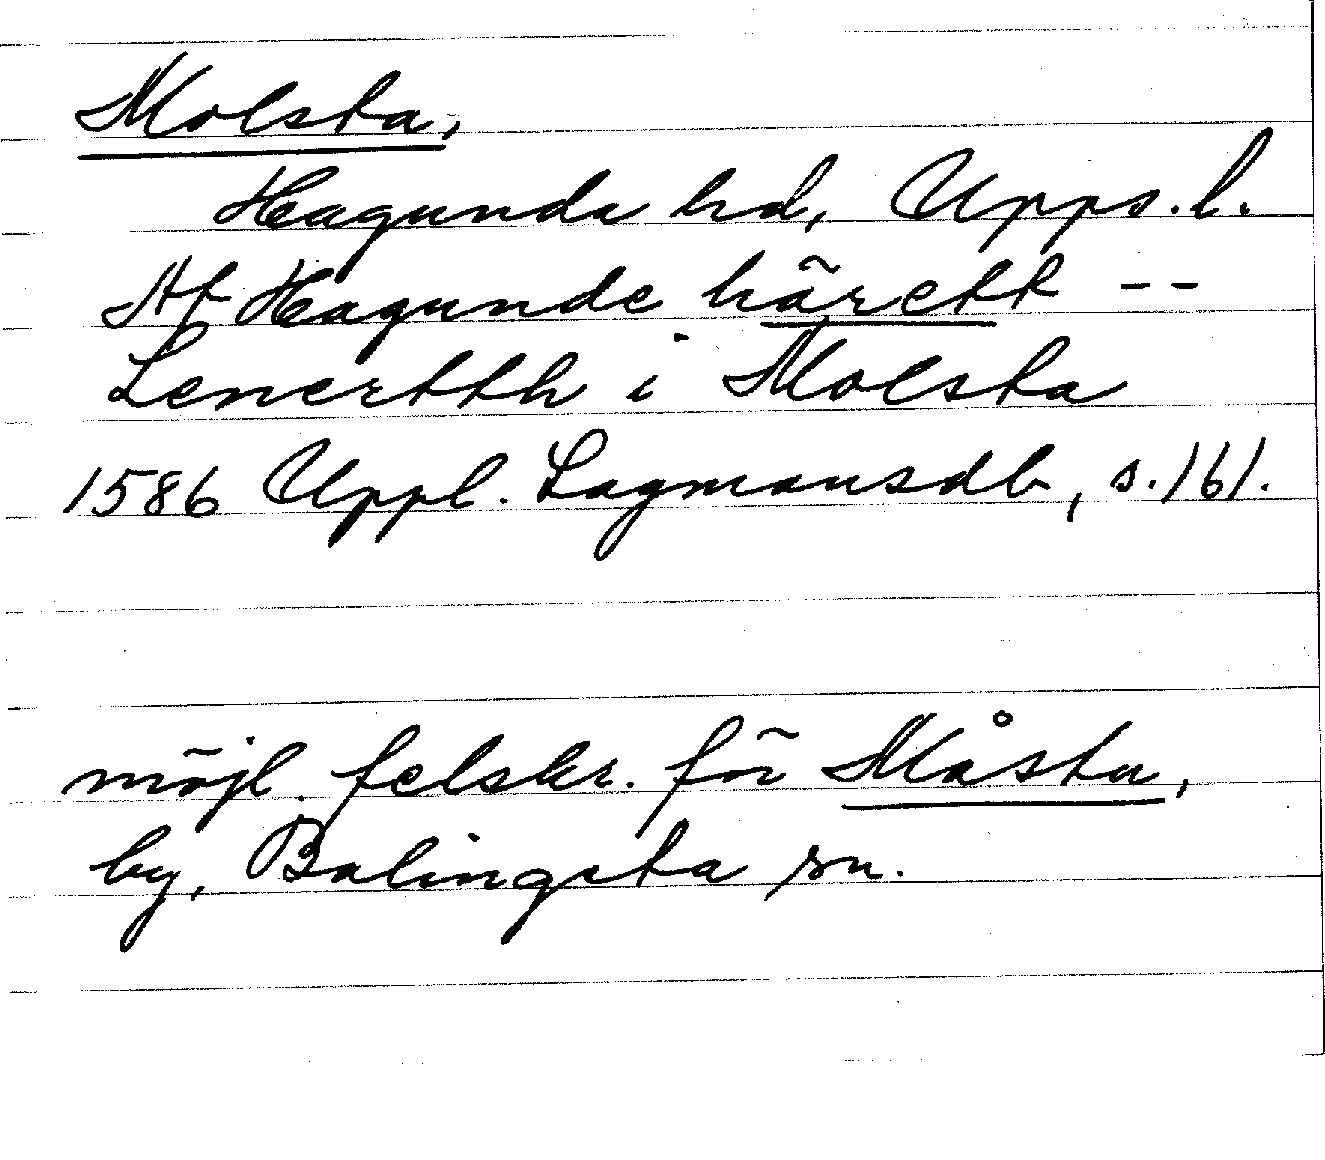 Molsta,
Hagunda hd, Upps. l.
Af Hagunde härett --
Lenertth i Molsta
1586 Uppl. Lagmansdb, s. 161.
möjl. felskr. för Måsta,
by, Balingsta sn.